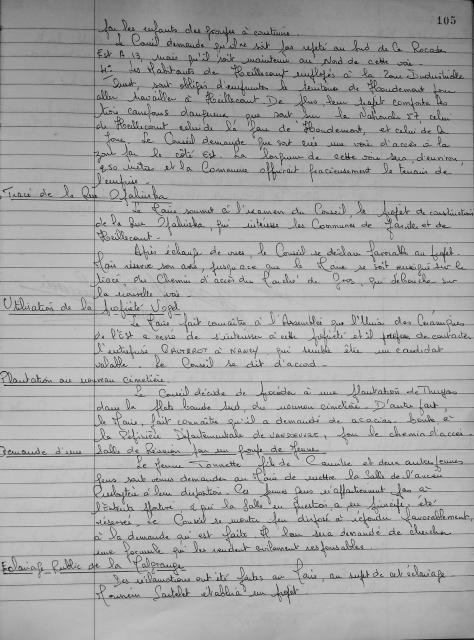 105
par les enfants des groupes à constituer.
Le Conseil demande qu'elle soit pas rejeté au Sud de la Rocade
Est A 13, mais qu'il soit maintenu au Nord de cette voie.
4 - Les habitants de Heillecourt employés à la Zone Industrielle
sont obligés d'emprunter le territoire de Houdemont pour
aller travailler à Heillecourt. De plus leur trajet comporte
trois carrefours dangereux, que sont sur la Nationale 57 celui
de Heillecourt celui de la gare de Houdemont, et celui de la
Zone. Le Conseil demande que soit créé une voie d'accès à la
zone par le côté Est. La longueur de cette voie sera d'environ,
450 mètres et la Commune offrirait gracieusement le terrain de
l'emprise.
Tracé de la Rue
Le Maire soumet à l'examen du Conseil, le projet de construction
de la Rue qui intéresse les Communes de Jarville et de
Heillecourt.
Après échange de vues, le Conseil se déclare favorable au projet.
Mais réserve son avis, jusqu'à ce que le Maire se soit renseigné sur le
tracé du Chemin d'accès du Marché de Gros, qui débouche sur
la nouvelle voie.
Utilisation de la propriété Vogel
Le Maire fait connaître à l'Assemblée que l'Union des Céramiques
de l'Est a cessé de s'intéresser à cette propriété et il propose de contacter
l'entreprise à NANCY, qui semble être un candidat
valable. Le Conseil se dit d'accord.
Plantation au nouveau cimetière.
Le Conseil décide de procéder à une plantation de Thuyas
dans la plate bande sud, du nouveau cimetière. D'autre part,
le Maire, fait connaître qu'il a demandé des acacias boule à
la Pépinière Départementale de VANDOEUVRE, pour le chemin d'accès
Demande d'une Salle de Réunion par un groupe de Jeunes
Le jeune fils de Camille et deux autres jeunes
gens sont venus demander au Maire de mettre la Salle de l'ancien
Presbytère à leur disposition. Ces jeunes gens n'appartiennent pas à
l'Entente Sportive à qui la Salle en question a en principe été
réservée. Le Conseil se montre peu disposé à répondre favorablement,
à la demande qui est faite. Il leur sera demandé de chercher
une formule qui les rendent civilement responsables.
Eclairage Public de la
Des réclamations ont été faites au Maire, au sujet de cet éclairage.
Monsieur établira un projet.